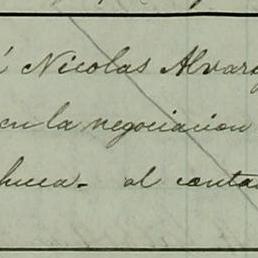 á Nicolas Alvar
en la negociacion
huca - al conta